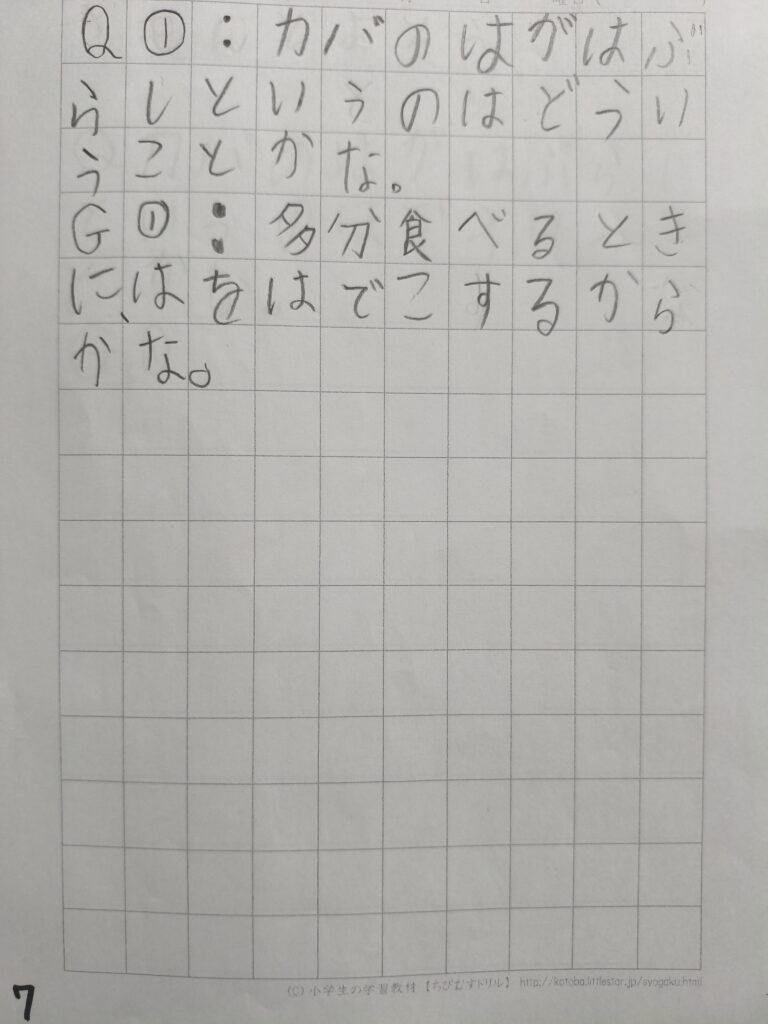 Q①:カバのはがはぶ
らしというのはどうい
うことかな。
G①:多分食べるとき
に、はをはでこするから
かな。
(C) 小学生の学習教材 【ちびむすドリル】 http://kotoba.littlestar.jp/syogaku.html
7